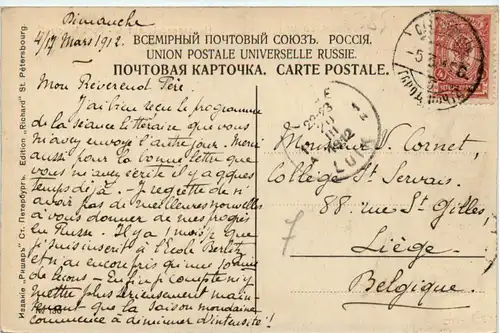 Dimanche
4/17 Mars 1912.
ВСЕМІРНЫЙ ПОЧТОВЫЙ СОЮЗЪ. РОССІЯ.
UNION POSTALE UNIVERSELLE RUSSIE.
ПОЧТОВАЯ КАРТОЧКА. CARTE POSTALE.
Mon Révérend Père.
J'ai bien reçu le programme
de la séance littéraire que vous
m'avez envoyé l'autre jour. Merci
aussi pour la bonne lettre que
vous m'avez écrite il y a qques
temps déjà. – Je regrette de n'
avoir pas de meilleures nouvelles
à vous donner de mes progrès
en Russe. Il y a 1 mois que
je suis inscrit à l'Ecole Berlitz
et n'ai encore pris qu'une
de leçons – Enfin je compte m'y
mettre plus sérieusement main-
tenant que la saison mondaine
commence à diminuer d'intensité!
Monsieur S. Cornet,
Collège St Servais.
88. rue St Gilles,
Liège.
Belgique.
7
1912
Изданіе „Ришаръ" Ст. Петербургъ. Edition „Richard" St. Pétersbourg.